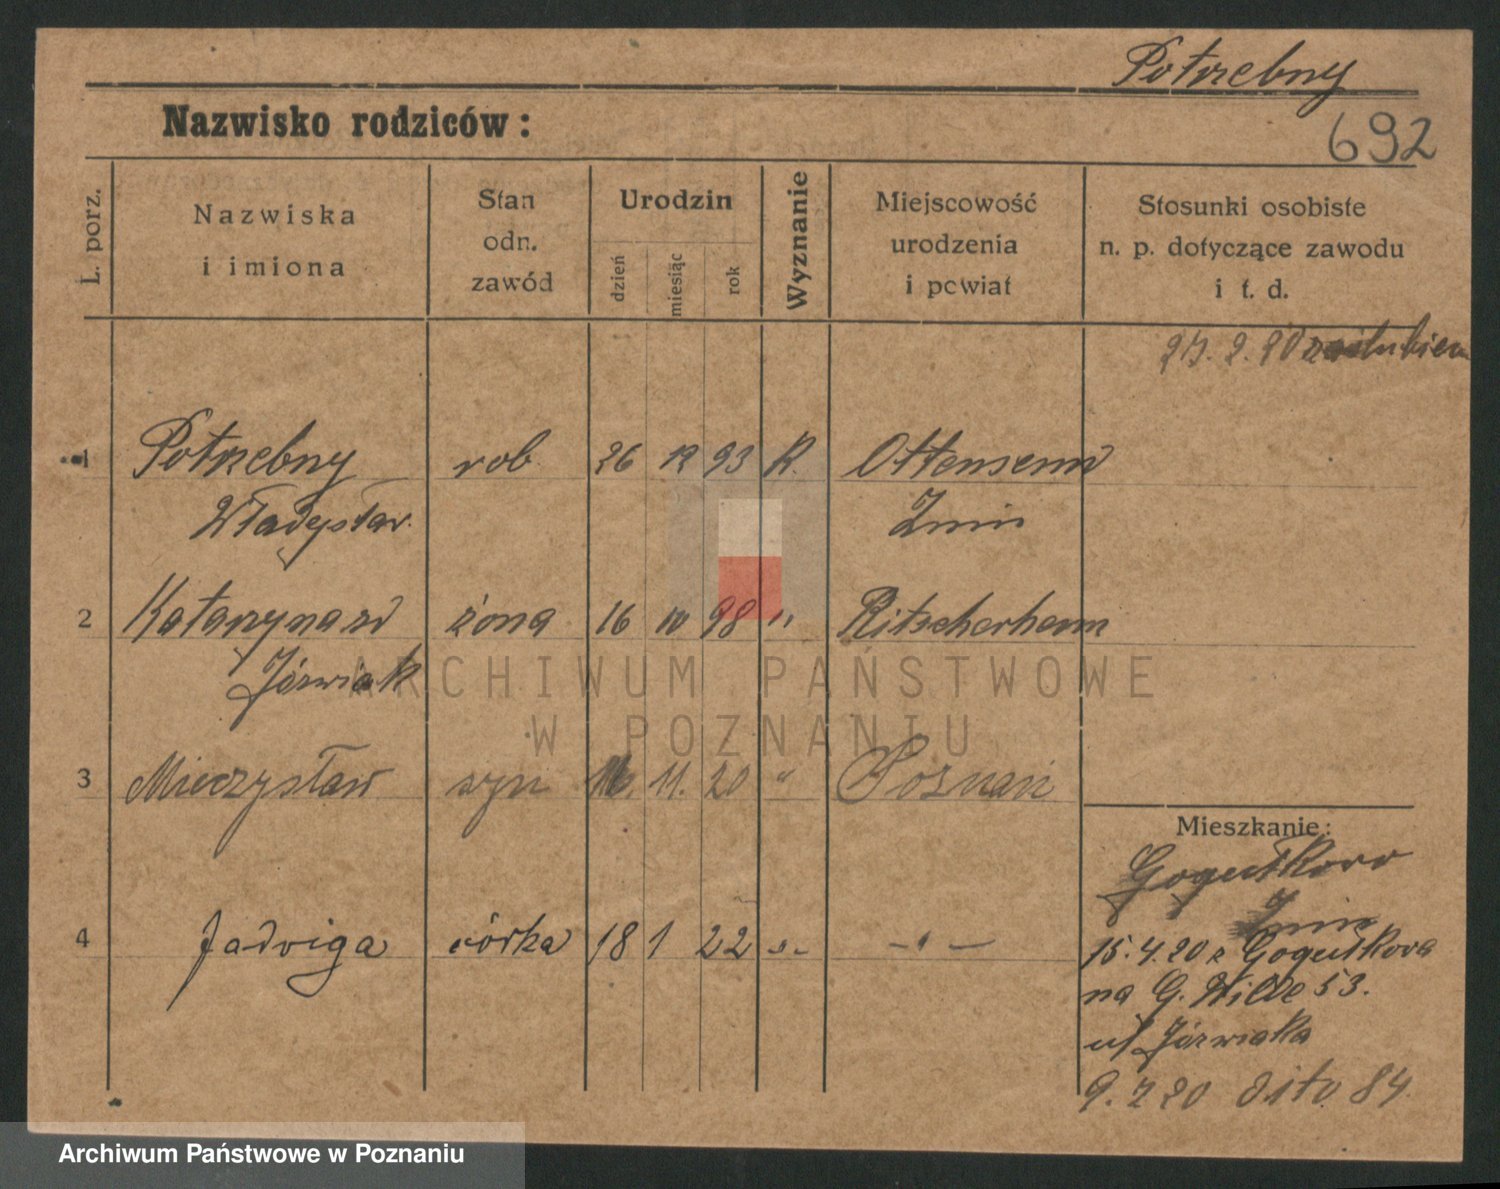 Potrzebny
692
Nazwisko rodziców:
L. porz.
Nazwiska
i imiona
Stan
odn.
zawód
Urodzin
dzień
miesiąc
rok
Wyznanie
Miejscowość
urodzenia
i powiat
Stosunki osobiste
n. p. dotyczące zawodu
i t. d.
2.20 z ślubien
1 Potrzebny rob 26 12 93 K. Ottensund
Władysław Żnin
2 Katarzyna zd żona 16 10 98 " Ritscherheim
Józwiak
3 Mieczysław syn 11. 20 " Poznań
4 Jadwiga córka 18 1 22 -"- -"-
Mieszkanie:
Gogułkowo
Żnin
15.4.20 z Gogułkowa
na G. Wilde 53.
u/ Józwiaka
9.7 20 dito 84.
ARCHIWUM PAŃSTWOWE
W POZNANIU
Archiwum Państwowe w Poznaniu